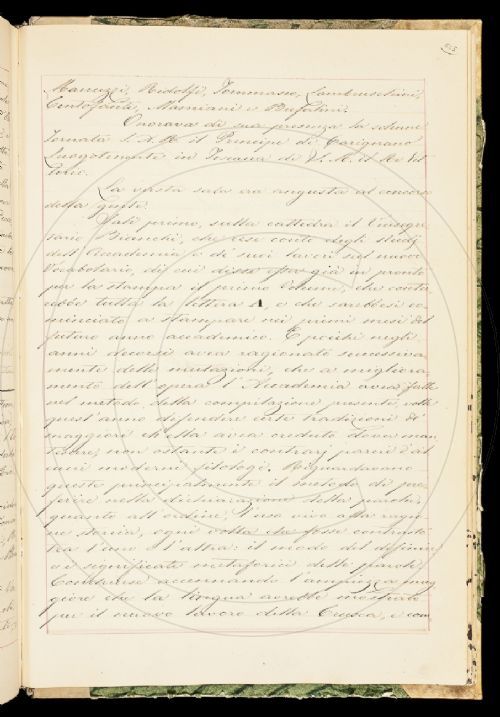 Manuzzi, Ridolfi, Tommaseo, Lambruschini,
Centofanti, Mamiani e Bufalini.
Onorava di sua presenza la solenne
tornata S. A. R. il Principe di Carignano
Luogotenente in Toscana di S. M. il Re Vit
torio.
La vasta sala era angusta al concorso
della gente.
Salì primo, sulla cattedra il Vicesegre
tario Bianchi, che rese conto degli studj
dell'Accademia e de' suoi lavori sul nuovo
Vocabolario, di cui disse esser già in pronto
per la stampa il primo Volume, che conte
rebbe tutta la lettera A, e che sarebbesi co
minciato a stampare nei primi mesi del
futuro anno accademico. E poichè negli
anni decorsi avea ragionato successiva
mente delle mutazioni, che a migliora
mento dell'opera l'Accademia avea fatte
nel metodo della compilazione presentò nella
quest'anno difendere certe tradizioni di
maggiori ch'essa avea creduto dover man
tenere, non ostante i contrarj pareri d'al
cuni moderni filologi. Riguardavano
queste principalmente il metodo di pre
ferire nella dichiarazione delle parole,
quanto all'ordine, l'uso vivo alla ragio
ne storica, ogni volta che fosse contrasto
tra l'uno e l'altra: il modo del definire
e i significati metaforici delle parole.
Concluse accennando l'ampiezza mag
giore che la lingua avrebbe mostrato
per il nuovo lavoro della Crusca, e con